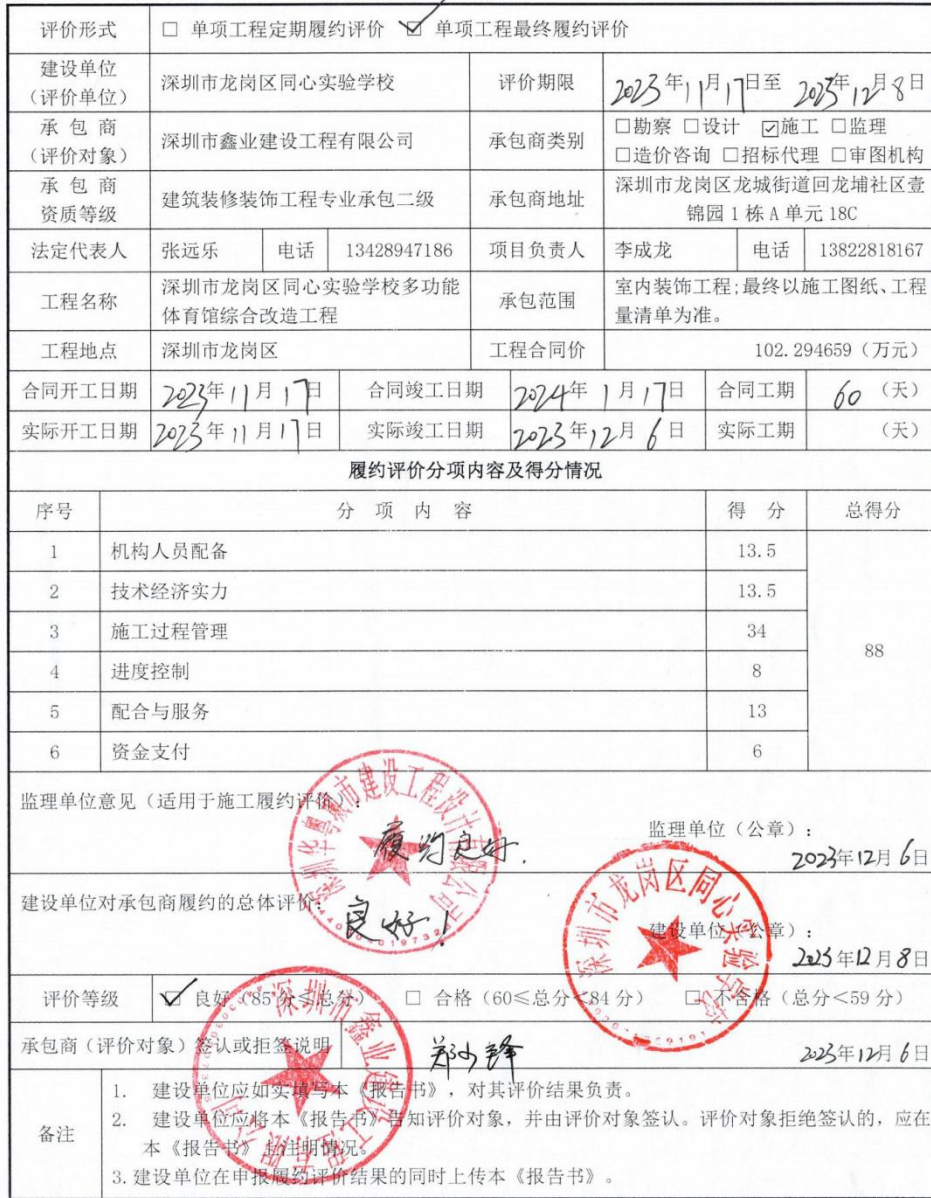 评价形式 □ 单项工程定期履约评价 ☑ 单项工程最终履约评价
建设单位
(评价单位) 深圳市龙岗区同心实验学校 评价期限 2023年11月17日至 2023年12月8日
承 包 商
(评价对象) 深圳市鑫业建设工程有限公司 承包商类别 □勘察 □设计 ☑施工 □监理
□造价咨询 □招标代理 □审图机构
承 包 商
资质等级 建筑装修装饰工程专业承包二级 承包商地址 深圳市龙岗区龙城街道回龙埔社区壹
锦园 1 栋 A 单元 18C
法定代表人 张远乐 电话 13428947186 项目负责人 李成龙 电话 13822818167
工程名称 深圳市龙岗区同心实验学校多功能
体育馆综合改造工程 承包范围 室内装饰工程;最终以施工图纸、工程
量清单为准。
工程地点 深圳市龙岗区 工程合同价 102.294659(万元)
合同开工日期 2023年11月17日 合同竣工日期 2024年1月17日 合同工期 60(天)
实际开工日期 2023年11月17日 实际竣工日期 2023年12月6日 实际工期 (天)
履约评价分项内容及得分情况
序号 分 项 内 容 得 分 总得分
1 机构人员配备 13.5
2 技术经济实力 13.5
3 施工过程管理 34
88
4 进度控制 8
5 配合与服务 13
6 资金支付 6
监理单位意见(适用于施工履约评价):
履约良好.
监理单位(公章):
2023年12月6日
深圳华粤城市建设工程设计有限公司
建设单位对承包商履约的总体评价:
良好!
建设单位(公章):
2023年12月8日
深圳市龙岗区同心实验学校
评价等级 ☑ 良好(85 分≤总分) □ 合格(60≤总分<84 分) □ 不合格(总分<59 分)
承包商(评价对象)签认或拒签说明 郑少锋 2023年12月6日
深圳市鑫业建设工程有限公司
备注
1. 建设单位应如实填写本《报告书》,对其评价结果负责。
2. 建设单位应将本《报告书》告知评价对象,并由评价对象签认。评价对象拒绝签认的,应在
本《报告书》上注明情况。
3.建设单位在申报履约评价结果的同时上传本《报告书》。